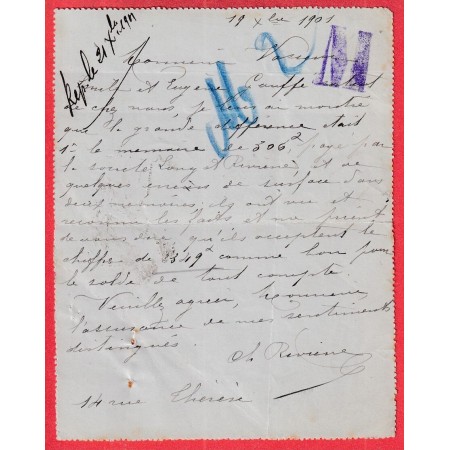 19 Xbre 1901
Rep. le 21 Xbre 1901
Monsieur
N 2
M
et Eugène
chez nous, je leur ai montré
que la grande différence était
1° le mémoire de 306,² payé par
la société Lony et Rivière et
quelques erreurs de surface dans
deux mémoires, ils ont vu et
reconnu les faits et me prient
de vous dire qu'ils acceptent le
chiffre de 349² comme bon pour
le solde de tout compte.
Veuillez agréer, Monsieur
l'assurance de mes sentiments
distingués.
Ch Rivière
14 rue Thérèse